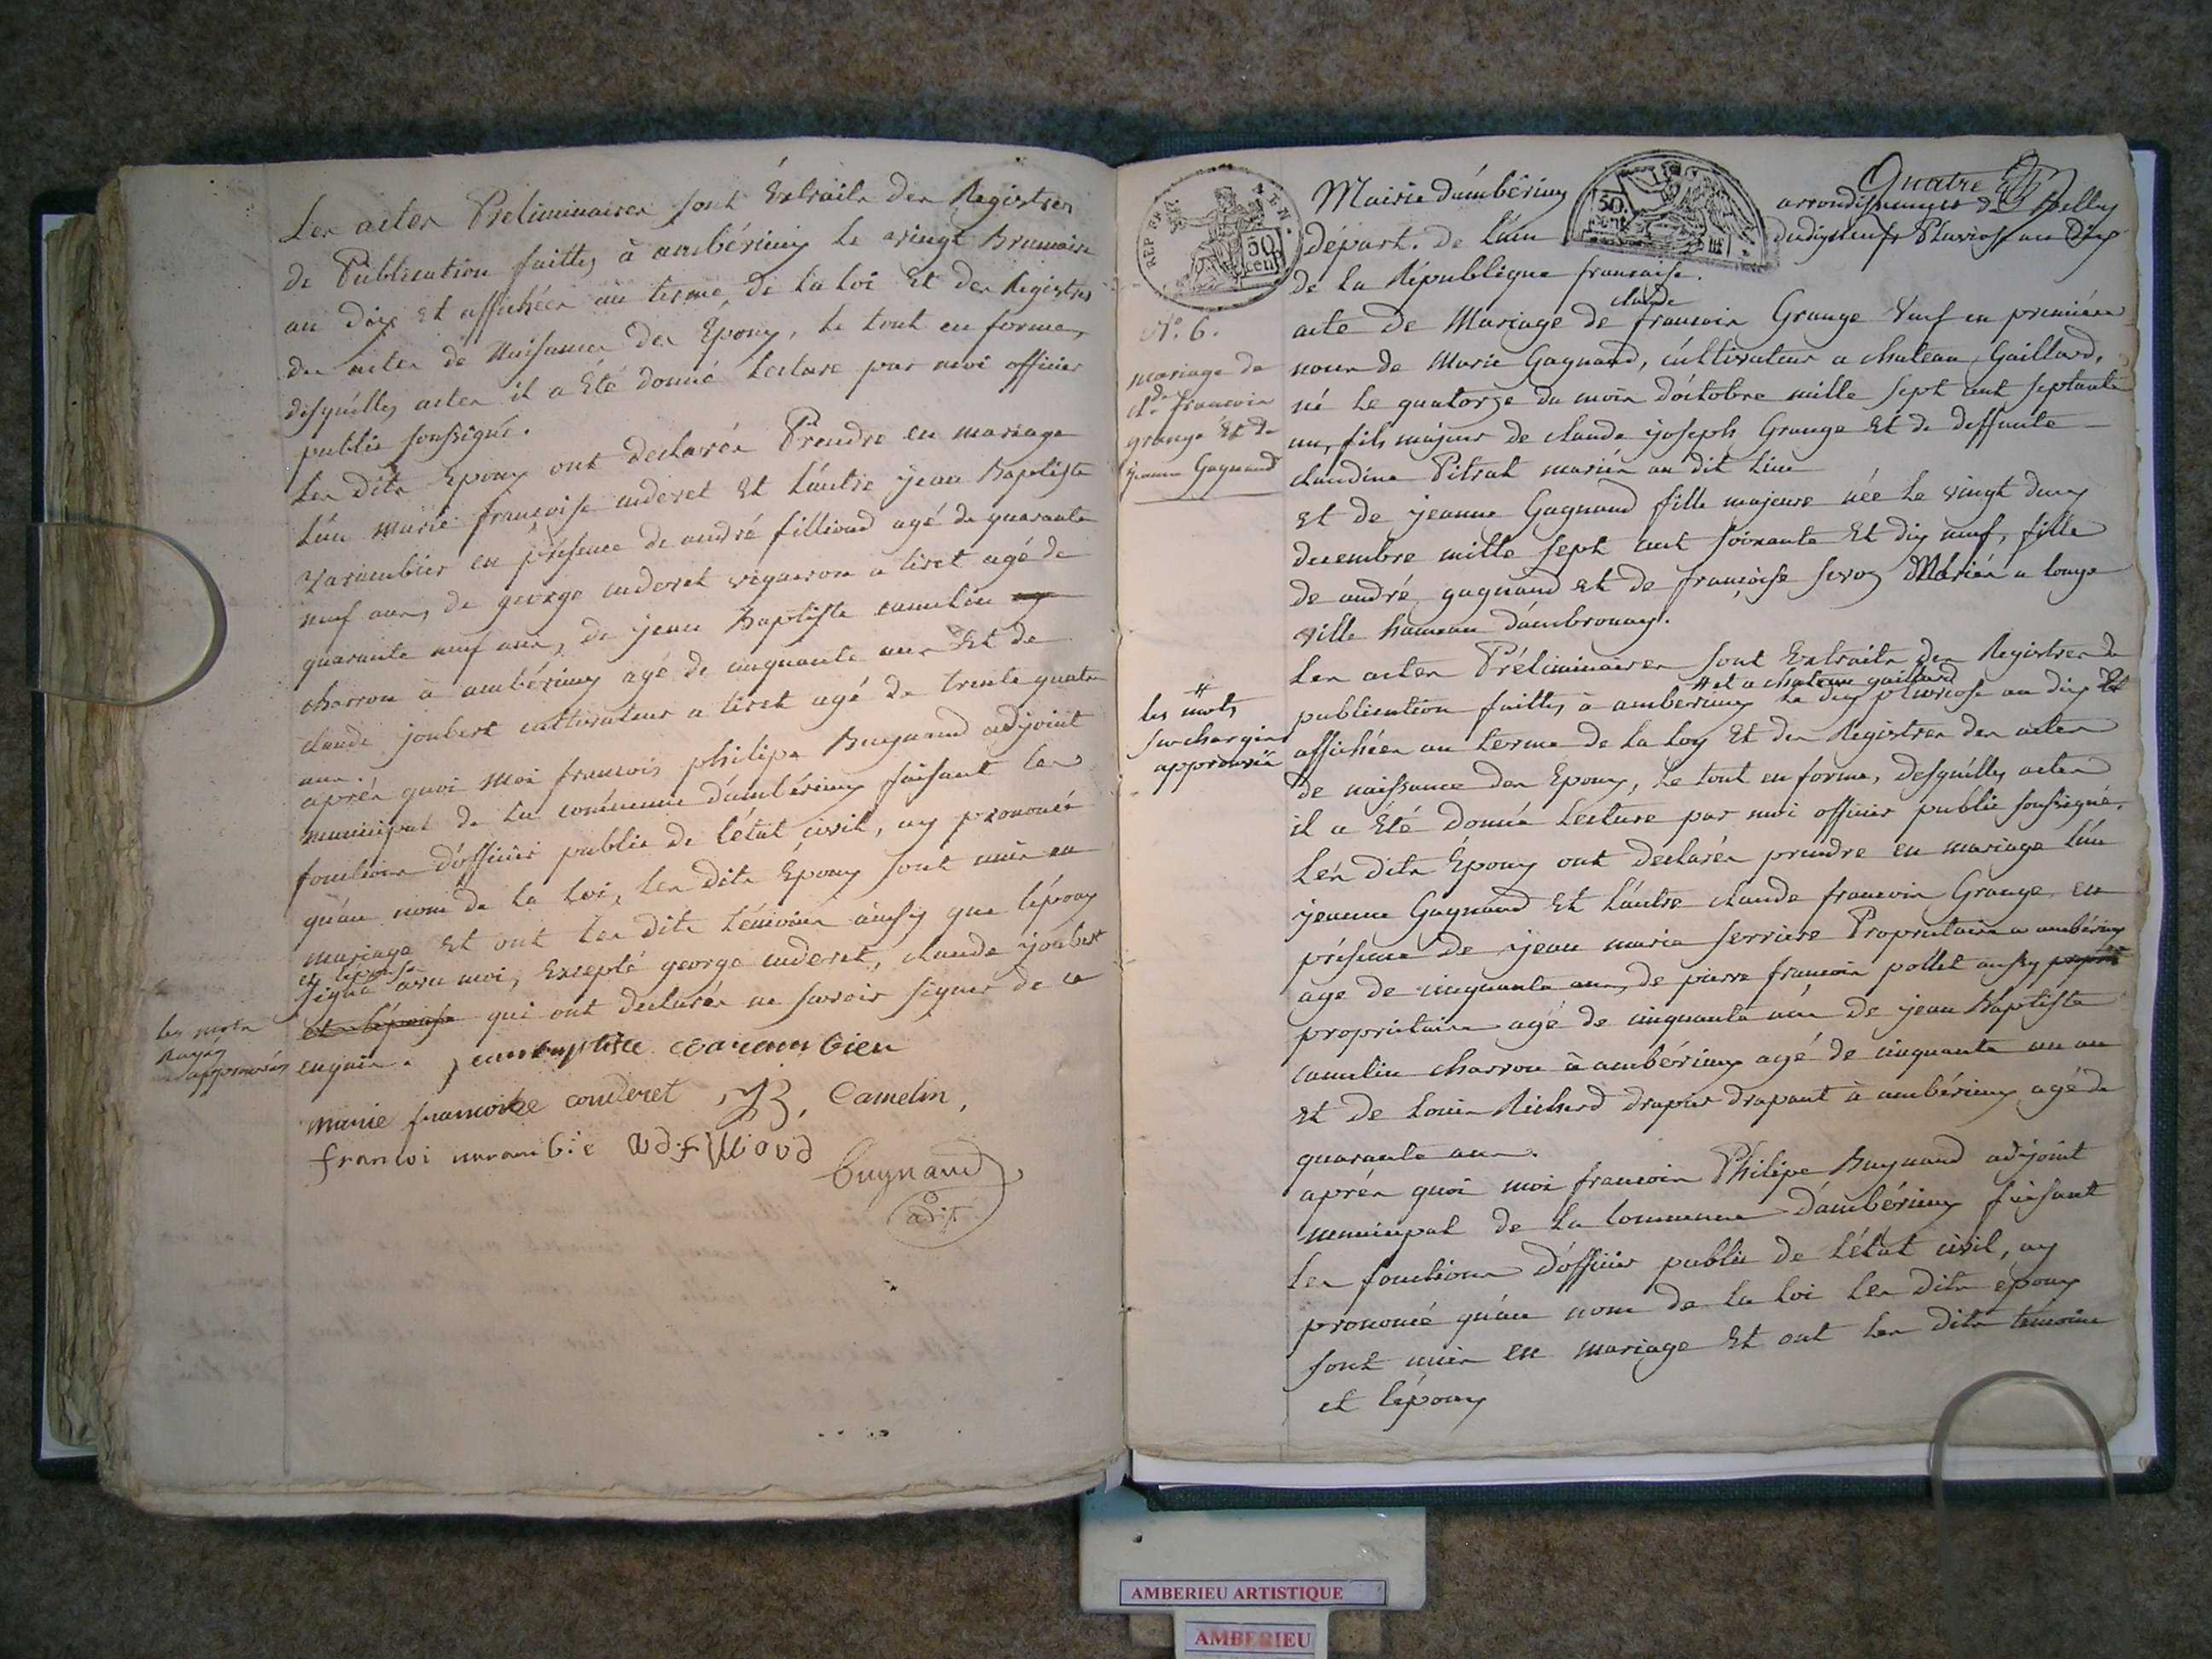 Les actes Préliminaires sont Extraits des Registres
de Publication faittes à ambérieux le vingt Brumaire
an dix et affichées au terme de la loi Et des Registres
des actes de Naissance des Epoux, le tout en forme,
desquelles actes il a Eté donné lecture par moi officier
public soussigné.
Les dits Epoux ont declarés Prendre en mariage
l'un marie françoise couderet Et l'autre jean Baptiste
Varambier en présence de andré fillioud agé de quarante
neuf ans, de george couderet vigneron a tiret agé de
quarante neuf ans, de jean Baptiste camelin
charron à ambérieux agé de cinquante ans Et de
claude joubert cultivateur a tiret agé de trente quatre
ans.
après quoi moi francois philipe Bugnand adjoint
municipal de la commune d'ambérieux faisant les
fonctions d'officier public de l'état civil, ay prononcé
qu'au nom de la loi, les dits Epoux sont unis en
mariage Et ont les dits témoins ainsy que l'époux
et l'épouse
signé avec moi, Excepté george couderet, claude joubert
et l'épouse qui ont declarés ne savoir signer de ce
enquis. jean baptiste varambier
les mots
Rayés
approuvés
marie francoise couderet JB, Camelin,
francoi varambie ad fillioud
Bugnand
adjt
Quatre
REP FRA
50 cent
Mairie d'ambérieux
50 cent
arrondissement de Belley
départ. de l'ain
du dix neuf Pluviose an dix
de la République francaise.
N.° 6.
mariage de
cl.de francois
grange Et de
jeanne Gagnand
claude
acte de Mariage de francois Grange Veuf en première
noces de Marie Gagnand, cultivateur a chateau Gaillard,
né le quatorze du mois d'octobre mille sept cent septante
un, fils majeur de claude joseph Grange Et de deffunte
claudine Pitrat mariés au dit lieu
Et de jeanne Gagnand fille majeure née le vingt deux
decembre mille sept cent soixante Et dix neuf, fille
de andré gagnand Et de françoise servoz Mariés a longe
ville hameau d'ambronay.
Les actes Préliminaires sont Extraits des Registres de
# et a chateau gaillard
publication faittes à amberieux le dix pluviose an dix Et
# les mots
surchargés
approuvés
affichées au terme de la loy Et des Registres des actes
de naissance des Epoux, le tout en forme, desquelles actes
il a Eté donné lecture par moi officier public soussigné.
Les dits Epoux ont declarés prendre en mariage l'un
jeanne Gagnand Et l'autre claude francois Grange en
présence de jean marie serriere Propriétaire a ambérieux
age de cinquante ans, de pierre françois pollet aussy
propriétaire agé de cinquante ans de jean Baptiste
camelin charron à ambérieux agé de cinquante un an
Et de Louis Richerd drapier drapant à ambérieux agé de
quarante ans.
après quoi moi francois Philipe Bugnand adjoint
municipal de la commune d'ambérieux faisant
les fonctions d'officier public de l'état civil, ay
prononcé qu'au nom de la loi les dits epoux
sont unis en mariage Et ont les dits témoins
et l'époux
AMBERIEU ARTISTIQUE
AMBERIEU